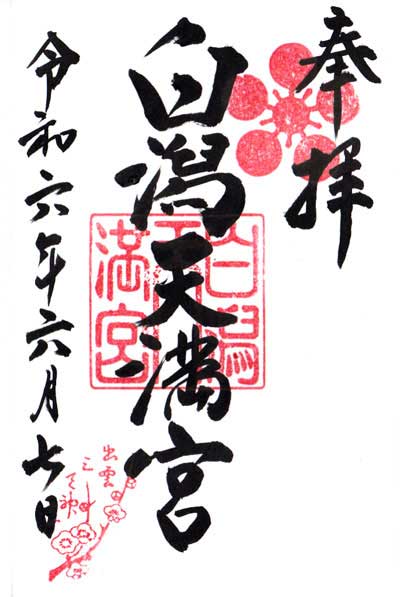 奉拝
白潟天満宮
令和六年六月七日
白潟天満宮
出雲
三天神